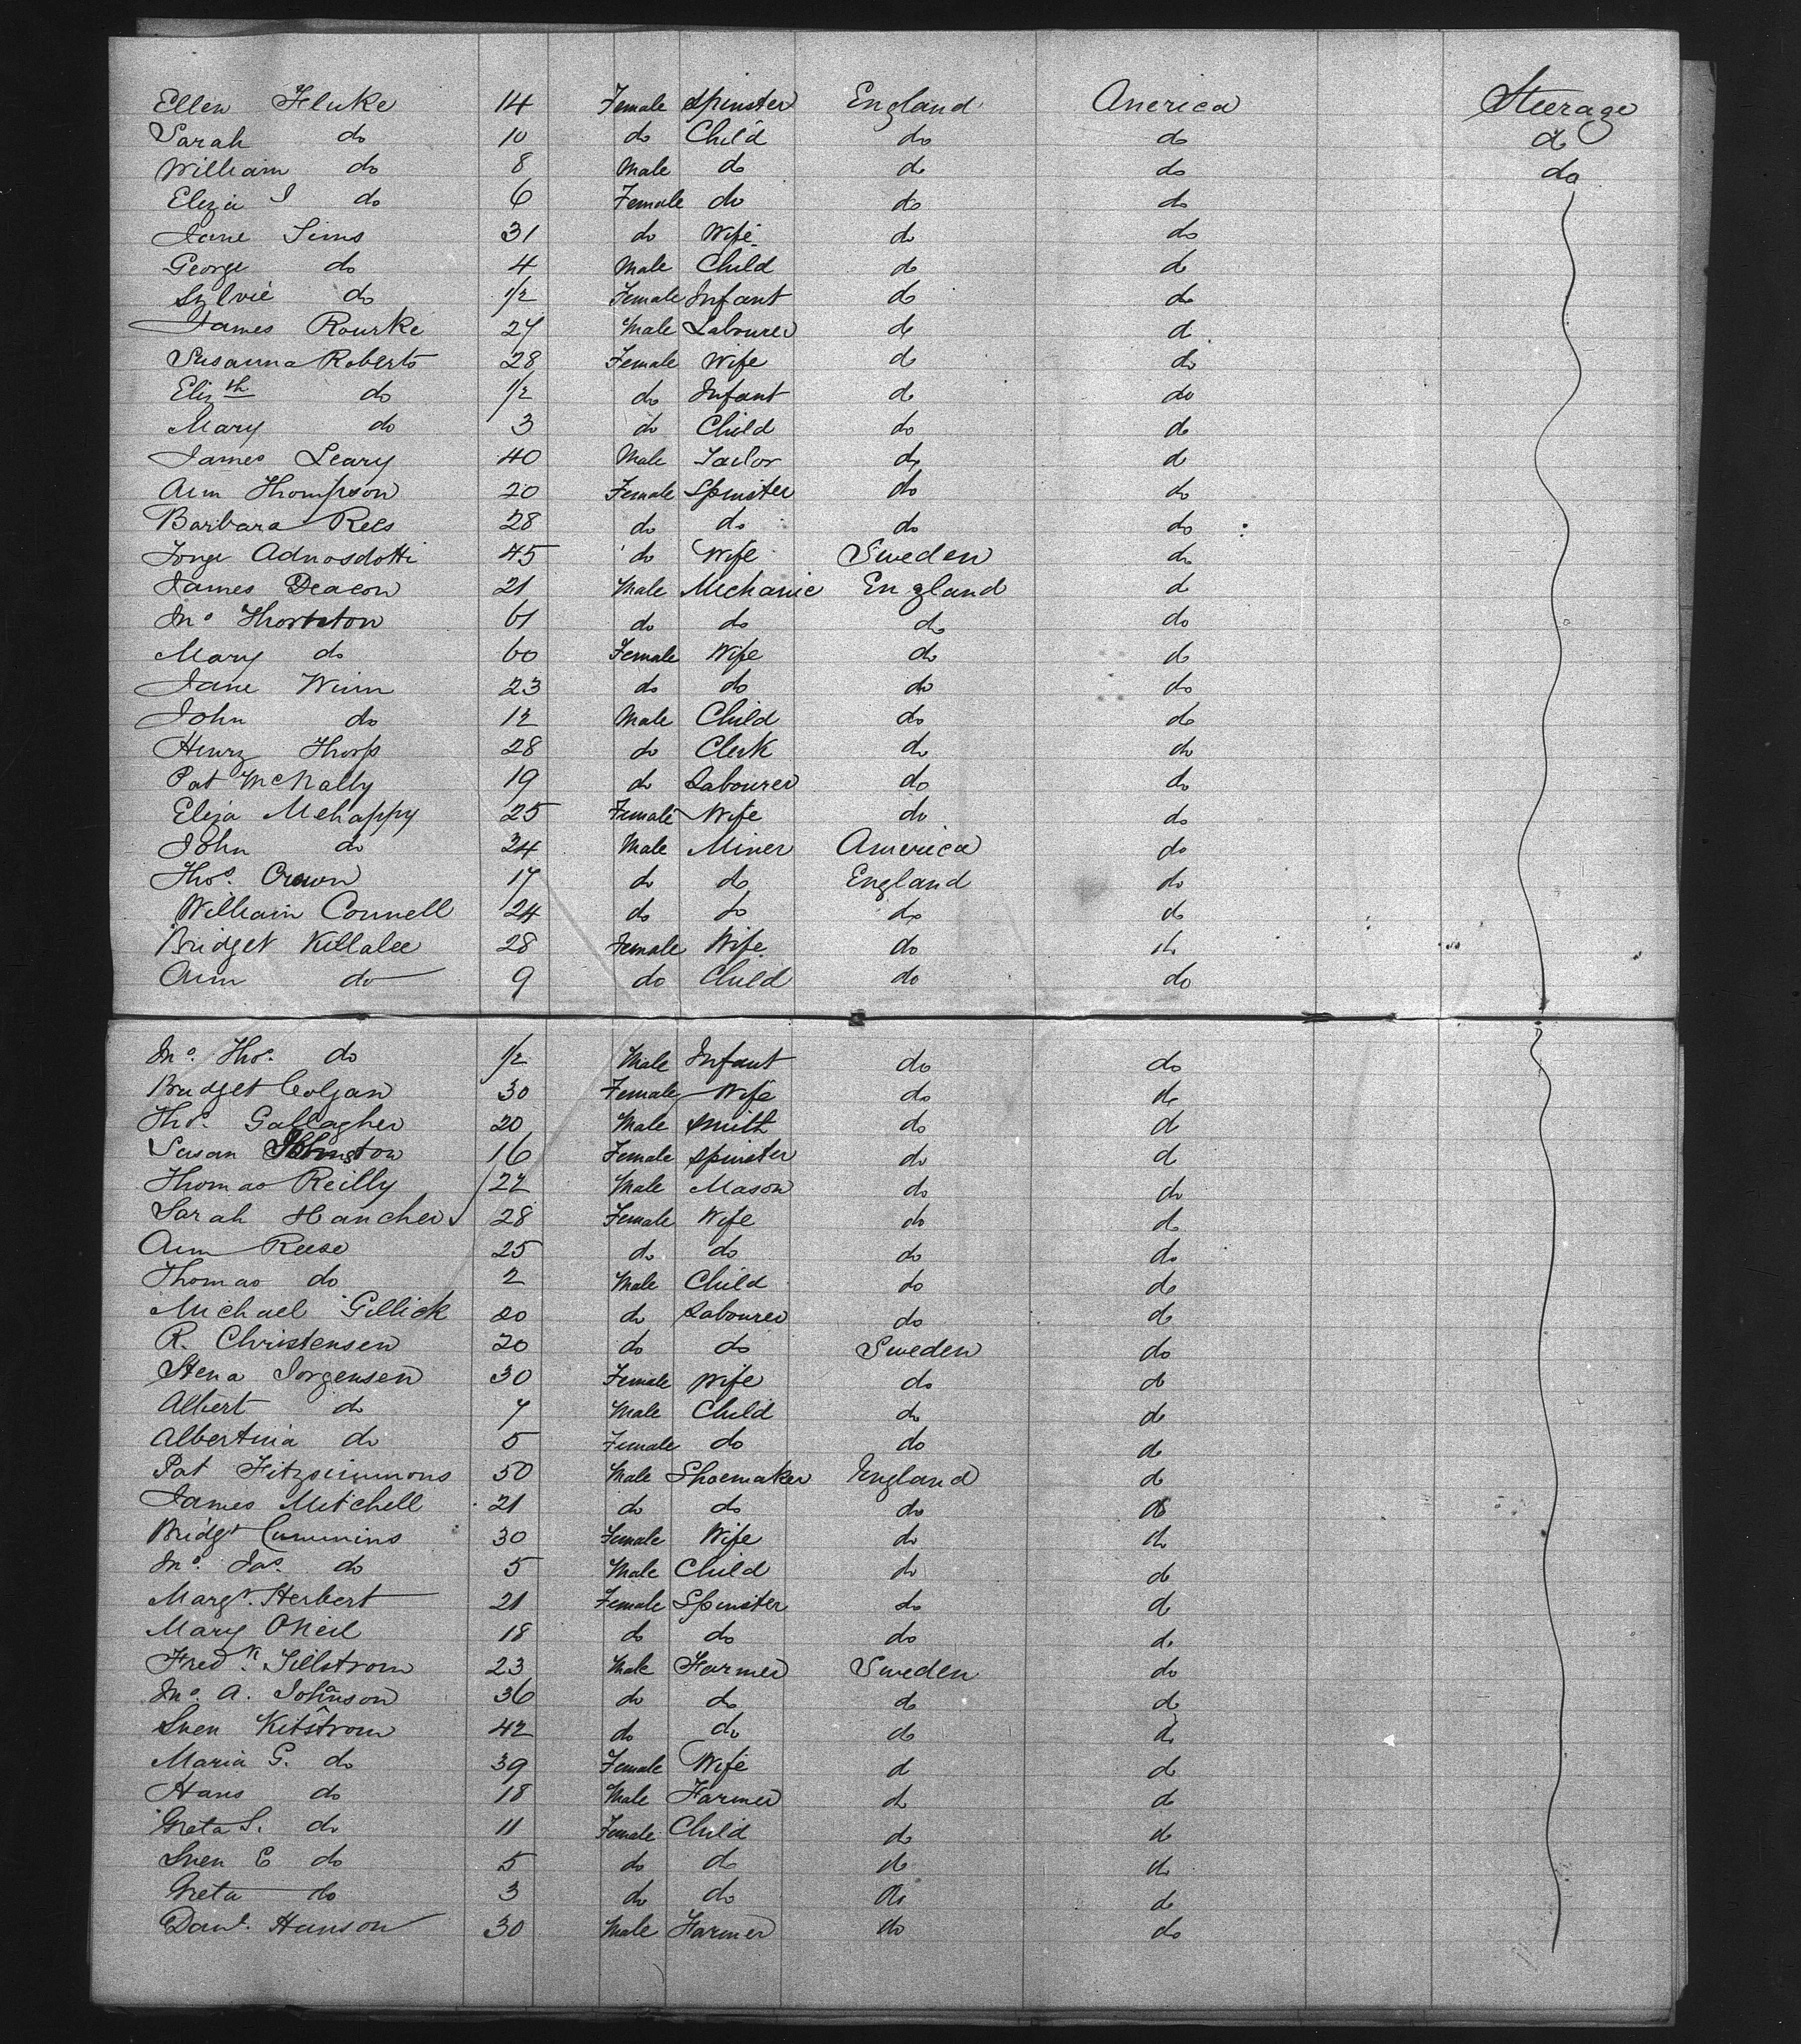 Ellen Fluke 14 Female Spinster England America Steerage
Sarah do 10 do Child do do do
William do 8 Male do do do do
Eliza J do 6 Female do do do
Jane Sims 31 do Wife do do
George do 4 Male Child do do
Sylvie do 1/2 Female Infant do do
James Rourke 27 Male Labourer do do
Susanna Roberts 28 Female Wife do do
Elizth do 1/2 do Infant do do
Mary do 3 do Child do do
James Leary 40 Male Tailor do do
Ann Thompson 20 Female Spinster do do
Barbara Rees 28 do do do do
Adnosdotti 45 do Wife Sweden do
James Deacon 21 Male Mechanic England do
Jno Thornton 61 do do do do
Mary do 60 Female Wife do do
Jane Winn 23 do do do do
John do 12 Male Child do do
Henry Thorp 28 do Clerk do do
Pat McNally 19 do Labourer do do
Eliza Mehappy 25 Female Wife do do
John do 34 Male Miner America do
Thos. Crown 17 do do England do
William Connell 24 do do do do
Bridget Killalee 28 Female Wife do do
Ann do 9 do Child do do
Jno. Thos. do 1/2 Male Infant do do
Bridget Colgan 30 Female Wife do do
Thos. Gallagher 20 Male Smith do do
Susan Johnston 16 Female Spinster do do
Thomas Reilly 22 Male Mason do do
Sarah Hancher 28 Female Wife do do
Ann Reese 25 do do do do
Thomas do 2 Male Child do do
Michael Gillick 20 do Labourer do do
R. Christensen 20 do do Sweden do
Stena Jorgensen 30 Female Wife do do
Albert do 7 Male Child do do
Albertina do 5 Female do do do
Pat Fitzsimmons 50 Male Shoemaker England do
James Mitchell 21 do do do do
Bridgt Cummins 30 Female Wife do do
Jno. Jas. do 5 Male Child do do
Margt. Herbert 21 Female Spinster do do
Mary ONeil 18 do do do do
Fredk. Tillstrom 23 Male Farmer Sweden do
Jno. A. Johanson 36 do do do do
Sven Kitstrom 42 do do do do
Maria G. do 39 Female Wife do do
Hans do 18 Male Farmer do do
Greta S. do 11 Female Child do do
Sven E do 5 do do do do
Greta do 3 do do do do
Danl. Hanson 30 Male Farmer do do